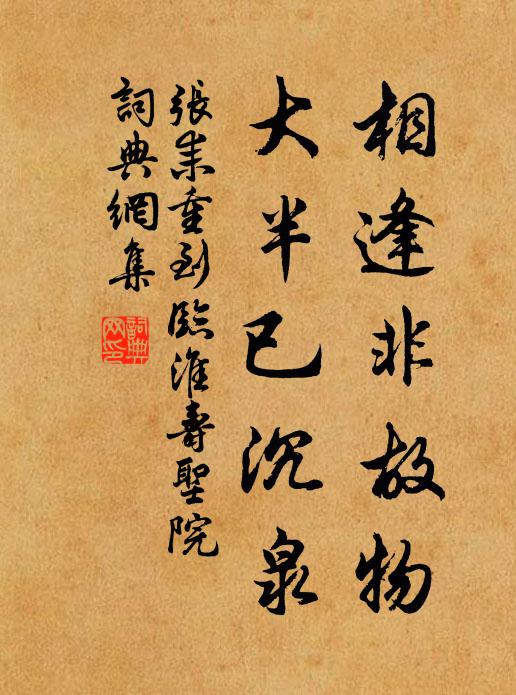 相逢非故物
大半已沉泉
張耒重到臨淮壽聖院
詞典網集
詞典網印